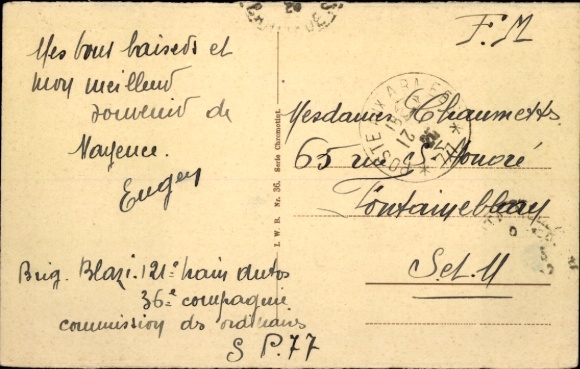 Mes bons baisers et
mon meilleur
souvenir de
Mayence.
Eugen
Brig. Blazi. 121e train autos
36e compagnie
commission des ordinaires
S P. 77
I. W. B. Nr. 36. Serie Chromotint.
F. M
POSTE AUX ARMEES * 77 *
21
Mesdames Chaumette
65 rue St Honoré
Fontainebleau
S. et. M